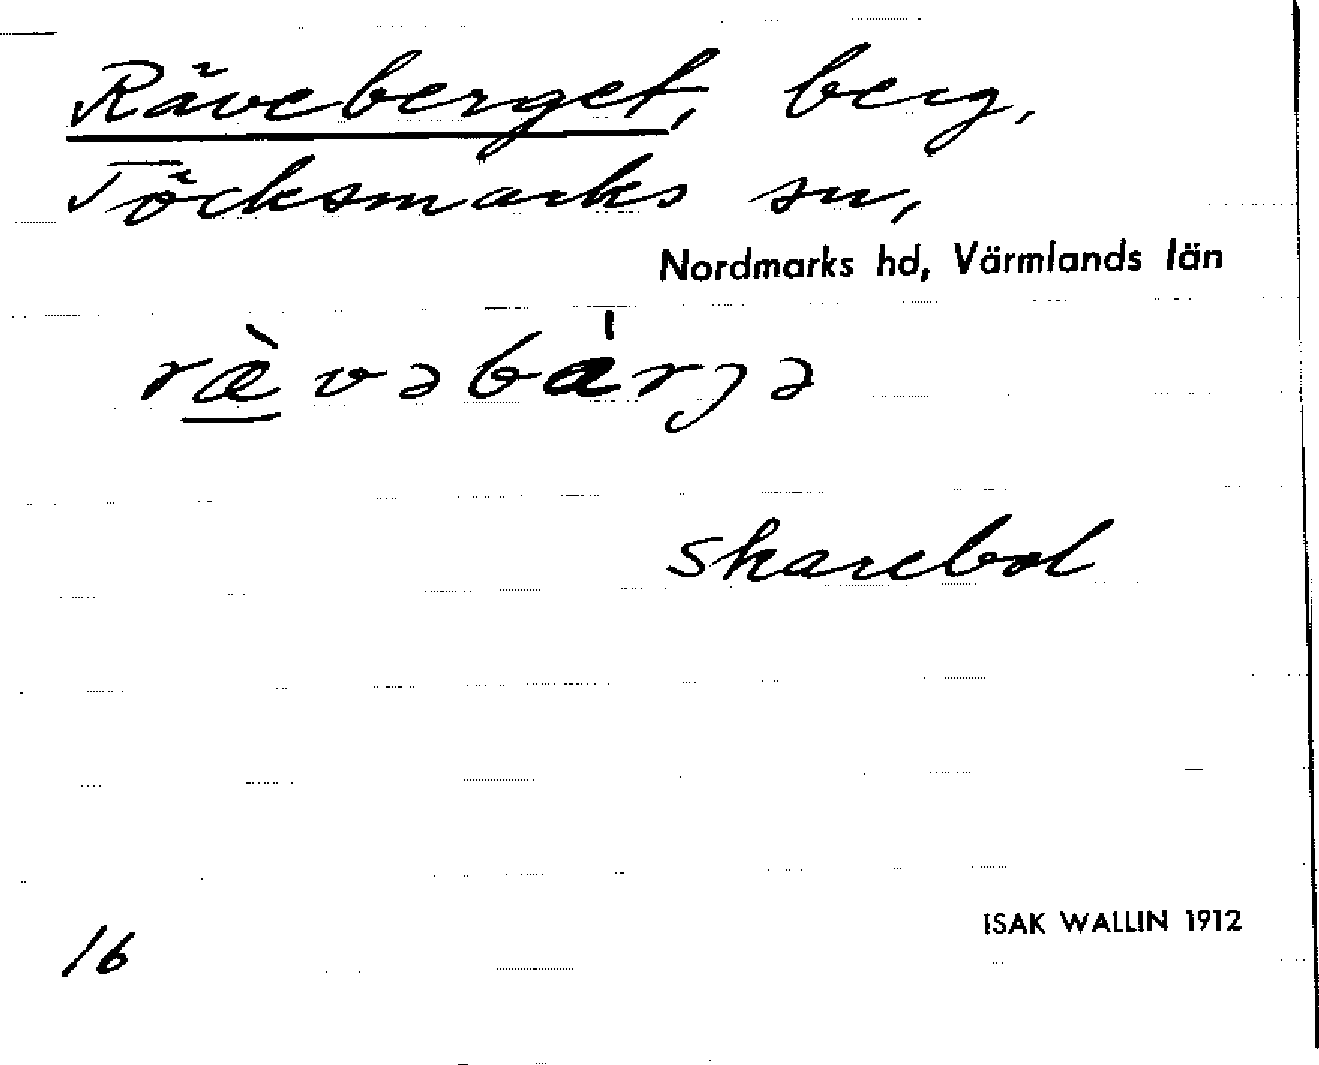 Räveberget, berg,
Töcksmarks sn,
Nordmarks hd, Värmlands län
ræ̀vəbárjə
Skarebol
ISAK WALLIN 1912
16